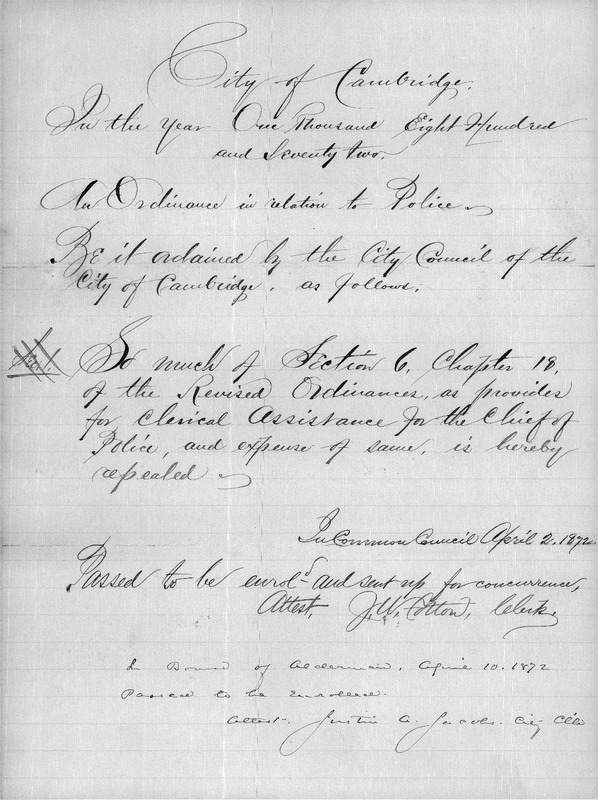 City of Cambridge.
In the Year One Thousand Eight Hundred
and Seventy two.
An Ordinance in relation to Police
Be it ordained by the City Council of the
City of Cambridge, as follows,
So much of Section 6, Chapter 18,
of the Revised Ordinances, as provides
for Clerical Assistance for the Chief of
Police, and expense of same, is hereby
repealed
In Common Council April 2. 1872
Passed to be enrold and sent up for concurrence,
Attest, J. W. Cotton, Clerk.
In Board of Aldermen, April 10. 1872
Passed to be Enrolled.
Attest. Justin A. Jacobs. City Clk